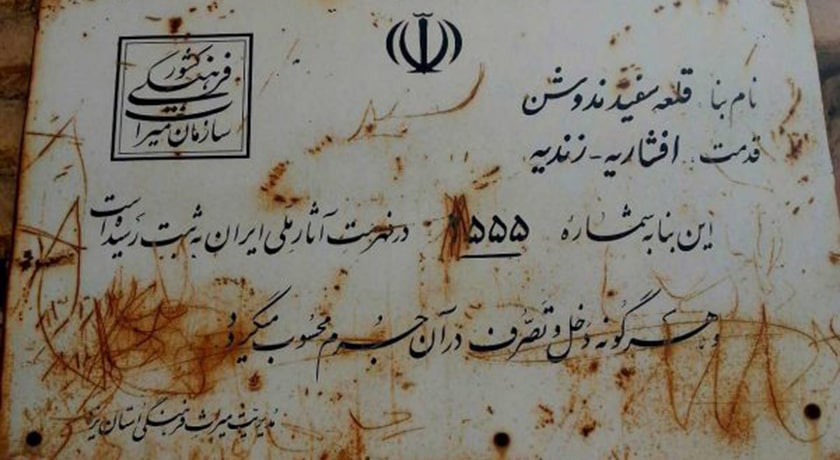 سازمان میراث فرهنگی کشور
نام بنا: قلعه سفید ندوشن
قدمت: افشاریه - زندیه
این بنا به شماره در فهرست آثار ملی ایران به ثبت رسیده است
و هرگونه دخل و تصرّف در آن جرم محسوب میگردد
مدیریت میراث فرهنگی استان یزد